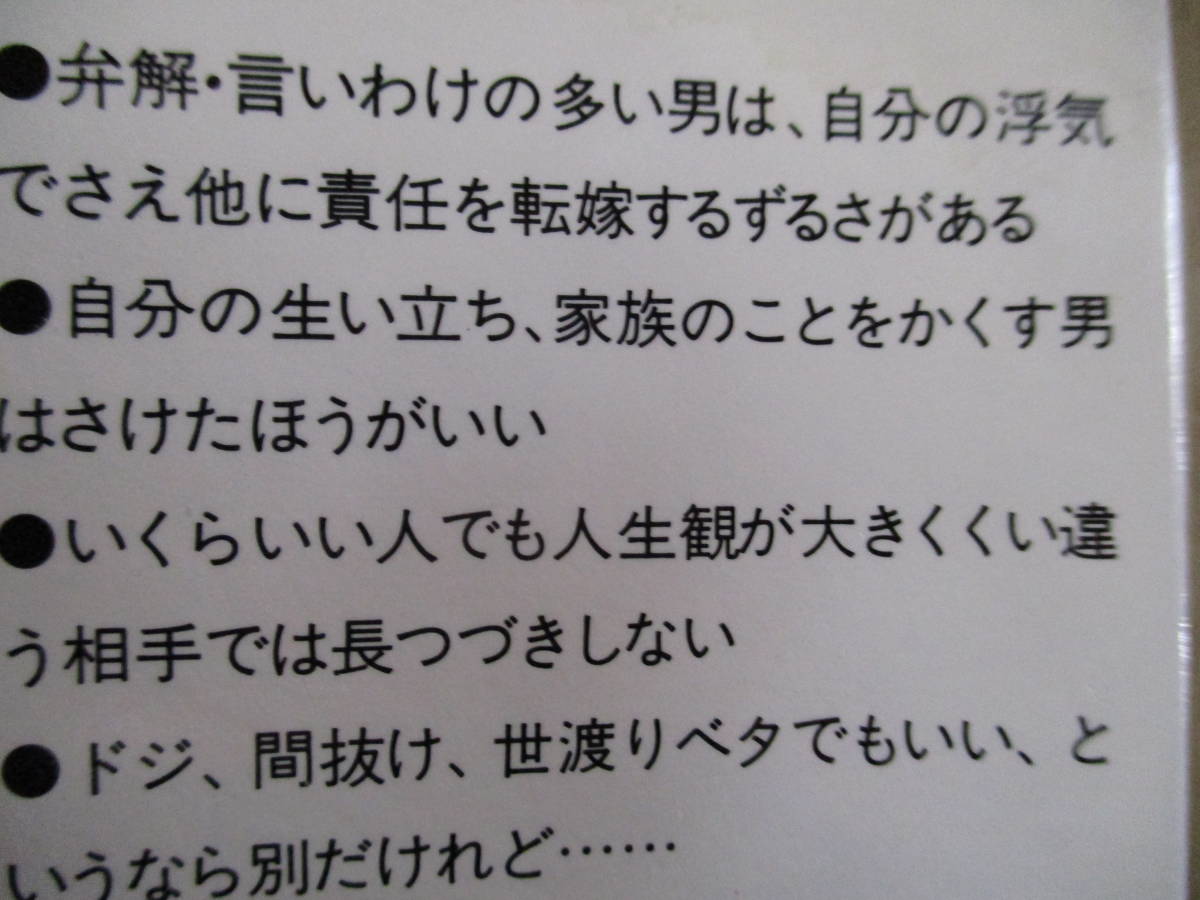 ●弁解・言いわけの多い男は、自分の浮気
でさえ他に責任を転嫁するずるさがある
●自分の生い立ち、家族のことをかくす男
はさけたほうがいい
●いくらいい人でも人生観が大きくくい違
う相手では長つづきしない
●ドジ、間抜け、世渡りベタでもいい、と
いうなら別だけれど……